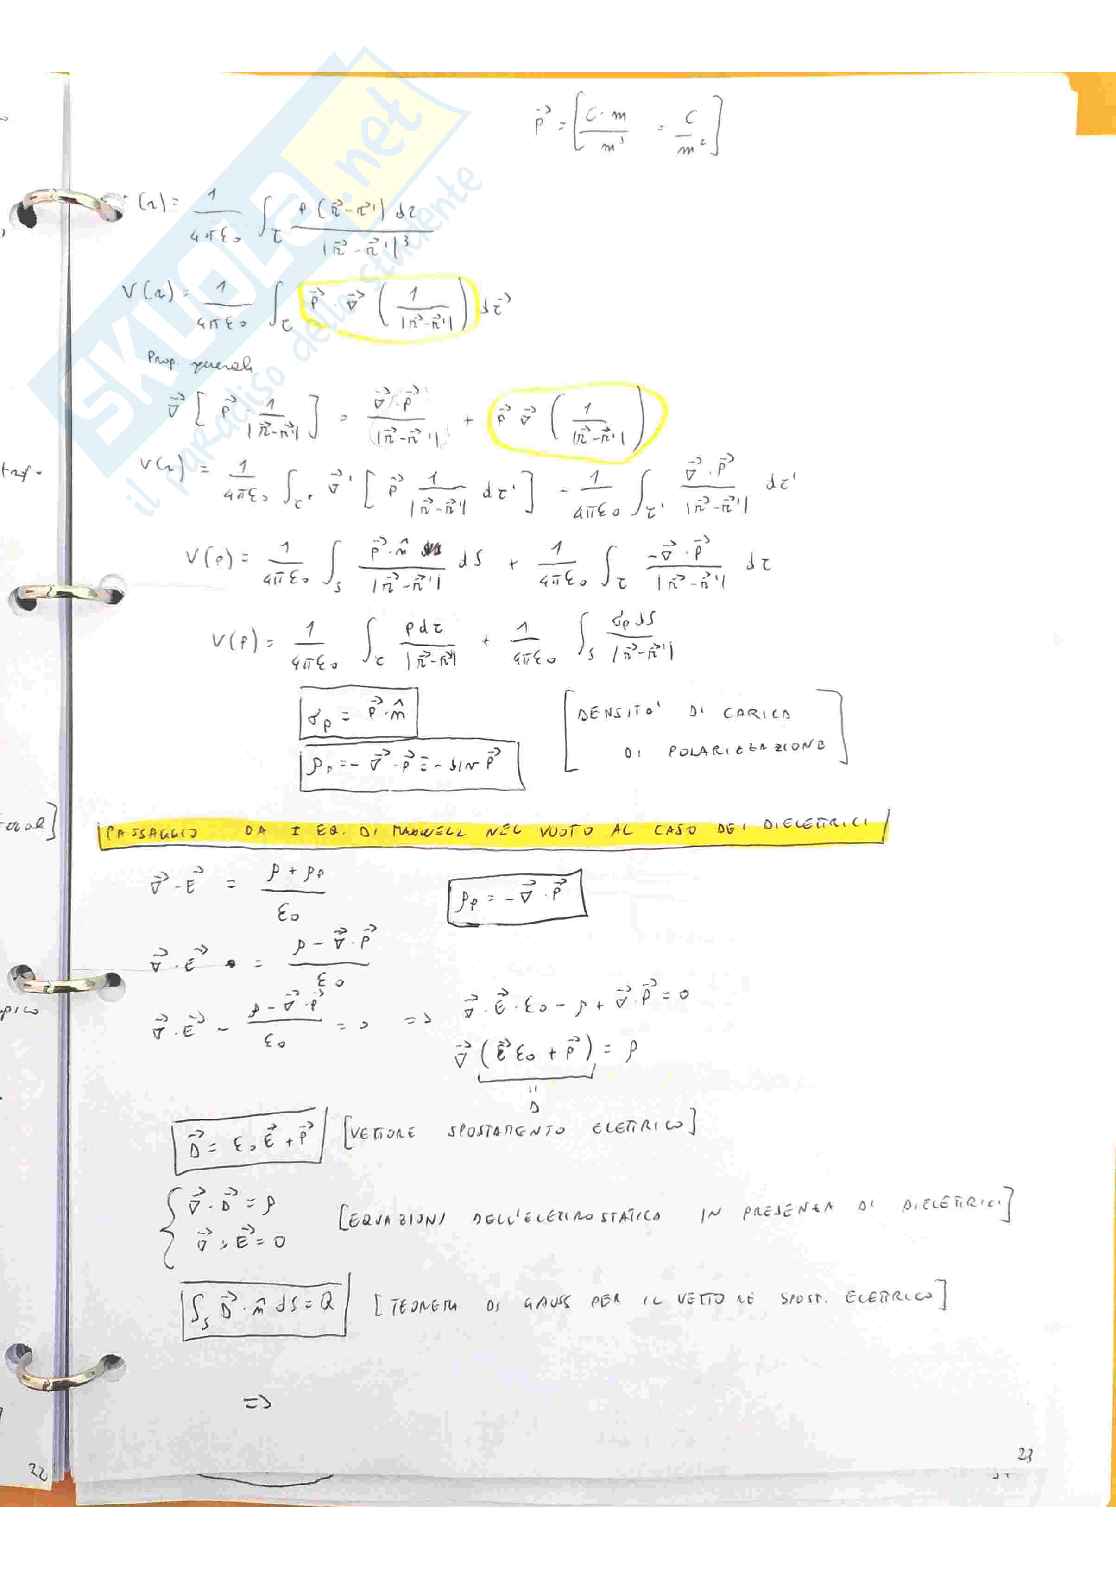 P⃗ = [C·m/m³ = C/m²]
(r) = 1/4πε₀ ∫τ P (r⃗-r⃗') dτ / |r⃗-r⃗'|³
V(r) = 1/4πε₀ ∫τ P⃗ ∇⃗ (1/|r⃗-r⃗'|) dτ⃗
Prop. generale
∇⃗ [P⃗ · 1/|r⃗-r⃗'|] = ∇⃗·P⃗/|r⃗-r⃗'| + P⃗ ∇⃗ (1/|r⃗-r⃗'|)
V(r) = 1/4πε₀ ∫τ' ∇⃗' [P⃗ 1/|r⃗-r⃗'| dτ'] - 1/4πε₀ ∫τ' ∇⃗·P⃗/|r⃗-r⃗'| dτ'
V(P) = 1/4πε₀ ∫s P⃗·n̂/|r⃗-r⃗'| dS + 1/4πε₀ ∫τ -∇⃗·P⃗/|r⃗-r⃗'| dτ
V(P) = 1/4πε₀ ∫τ ρdτ/|r⃗-r⃗'| + 1/4πε₀ ∫s σp dS/|r⃗-r⃗'|
σp = P⃗·n̂
[DENSITA' DI CARICA
DI POLARIZZAZIONE]
ρp = - ∇⃗·P⃗ = - div P⃗
PASSAGGIO DA I EQ. DI MAXWELL NEL VUOTO AL CASO DEI DIELETTRICI
∇⃗·E⃗ = ρ + ρp / ε₀
ρp = - ∇⃗·P⃗
∇⃗·E⃗ = ρ - ∇⃗·P⃗ / ε₀
∇⃗·E⃗ - ρ - ∇⃗·P⃗ / ε₀ = 0 => ∇⃗·E⃗·ε₀ - ρ + ∇⃗·P⃗ = 0
∇⃗ (E⃗ε₀ + P⃗) = ρ
"
D
D⃗ = ε₀E⃗ + P⃗ [VETTORE SPOSTAMENTO ELETTRICO]
{ ∇⃗·D⃗ = ρ
∇⃗ × E⃗ = 0 [EQUAZIONI DELL'ELETTROSTATICA IN PRESENZA DI DIELETTRICI]
∫s D⃗·n̂ dS = Q [TEOREMA DI GAUSS PER IL VETTORE SPOST. ELETTRICO]
=>
22
23
SKUOLA.net
il paradiso dello studente